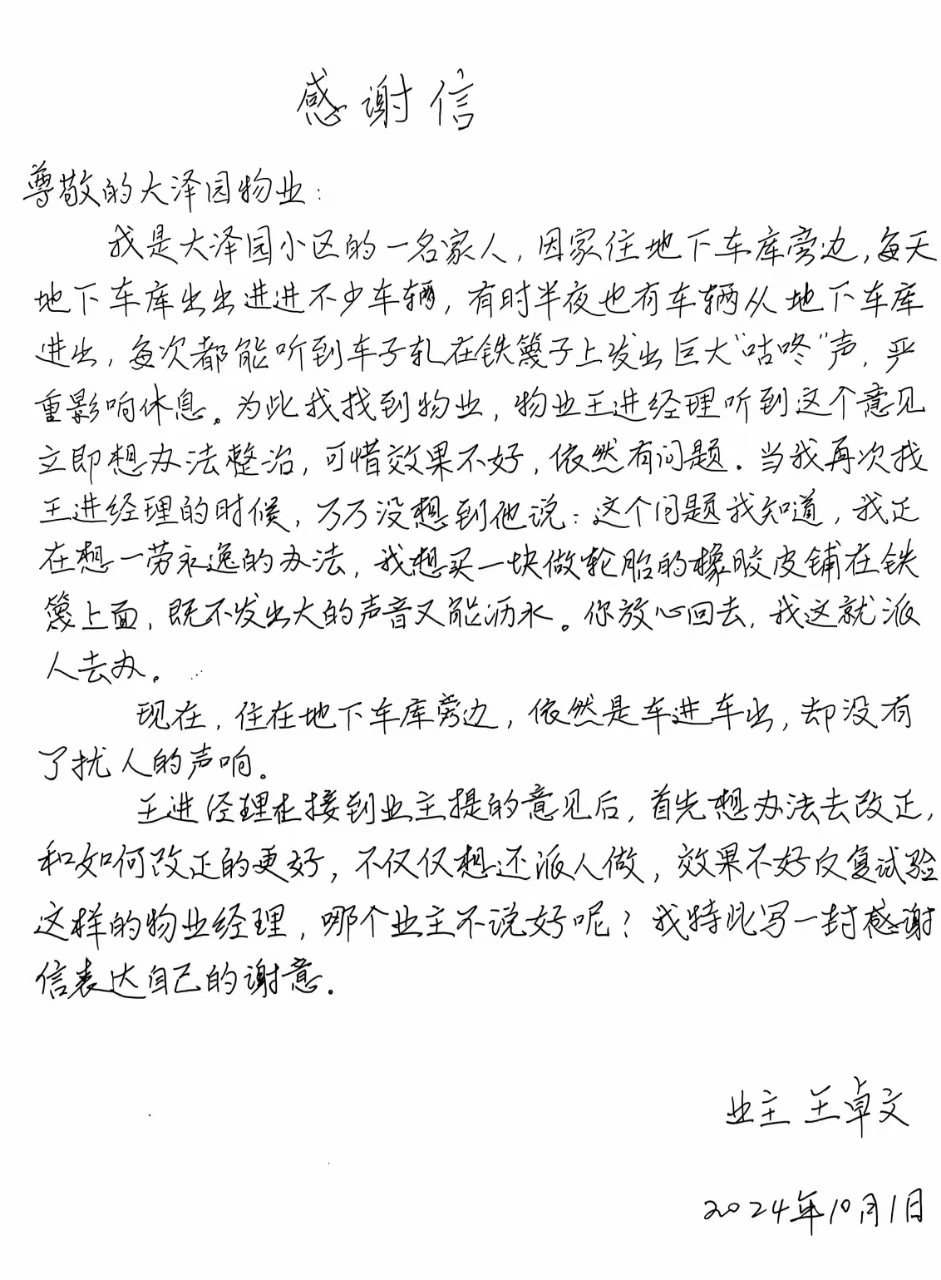 感谢信
尊敬的大泽园物业：
我是大泽园小区的一名家人，因家住地下车库旁边，每天
地下车库出出进进不少车辆，有时半夜也有车辆从地下车库
进出，每次都能听到车子轧在铁篾子上发出巨大“咕咚”声，严
重影响休息。为此我找到物业，物业王进经理听到这个意见
立即想办法整治，可惜效果不好，依然有问题。当我再次找
王进经理的时候，万万没想到他说：这个问题我知道，我正
在想一劳永逸的办法，我想买一块做轮胎的橡胶皮铺在铁
篾上面，既不发出大的声音又能沥水。你放心回去，我这就派
人去办。
现在，住在地下车库旁边，依然是车进车出，却没有
了扰人的声响。
王进经理在接到业主提的意见后，首先想办法去改正，
和如何改正的更好，不仅仅想还派人做，效果不好反复试验
这样的物业经理，哪个业主不说好呢？我特此写一封感谢
信表达自己的谢意。
业主 王卓文
2024年10月1日